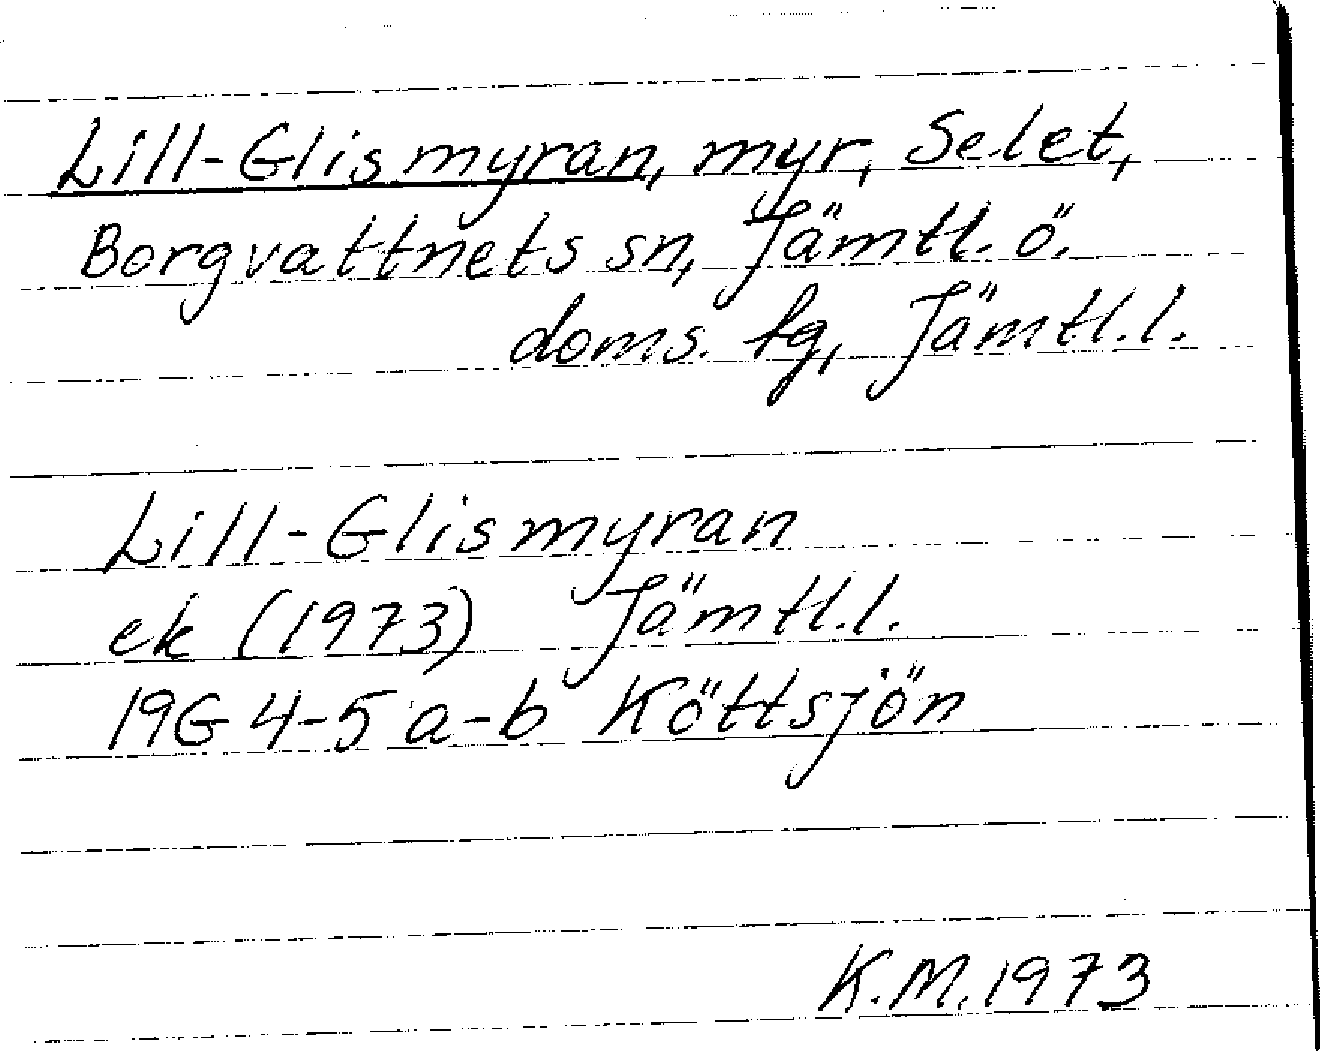 Lill-Glismyran, myr, Selet,
Borgvattnets sn, Jämtl. ö.
doms. fg, Jämtl. l.
Lill-Glismyran
ek (1973) Jämtl. l.
19G 4-5 a-b Köttsjön
K.M. 1973